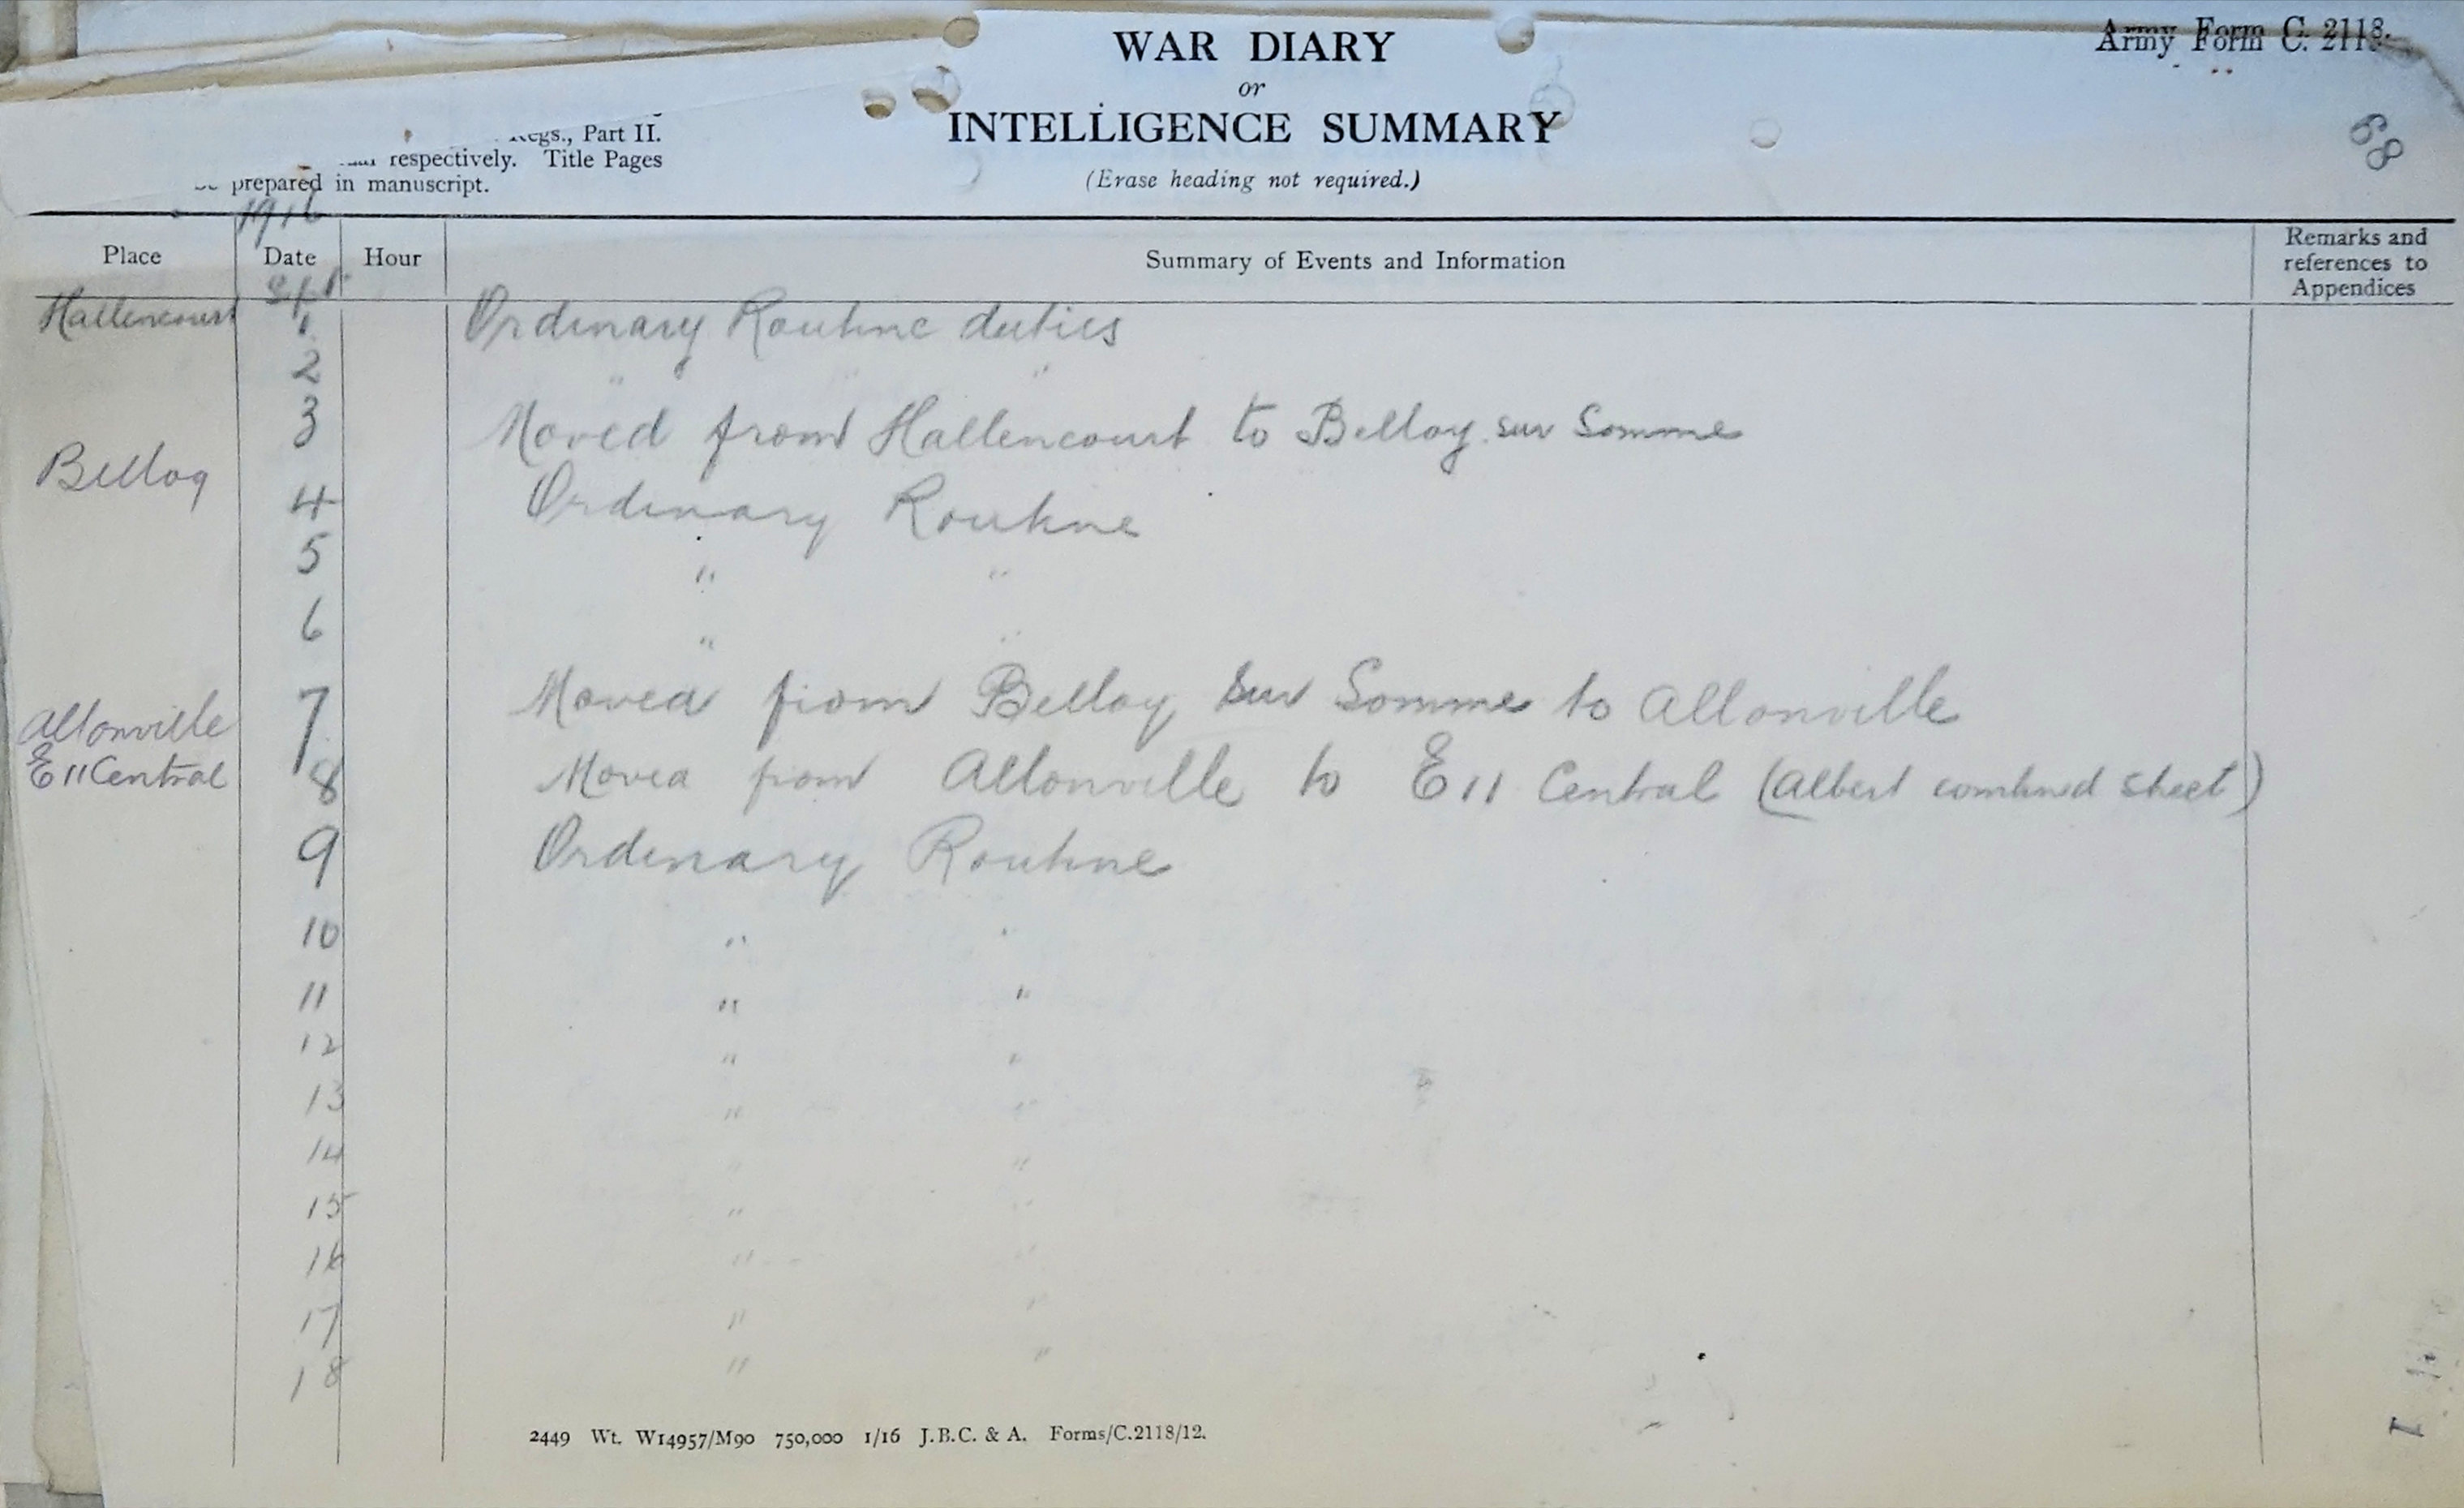 WAR DIARY
or
INTELLIGENCE SUMMARY
(Erase heading not required.)
Army Form C. 2118.
68
Regs., Part II.
respectively. Title Pages
be prepared in manuscript.
1916
Place Date Hour Summary of Events and Information Remarks and references to Appendices
Sept
Hallencourt 1. Ordinary Routine duties
2 " " "
3 Moved from Hallencourt to Belloy sur Somme
Belloy
4 Ordinary Routine
5 " "
6 " "
Allonville 7 Moved from Belloy sur Somme to Allonville
E11 Central 8 Moved from Allonville to E11 Central (Albert combined sheet)
9 Ordinary Routine
10 " "
11 " "
12 " "
13 " "
14 " "
15 " "
16 " "
17 " "
18 " "
2449 Wt. W14957/M90 750,000 1/16 J.B.C. & A. Forms/C.2118/12.